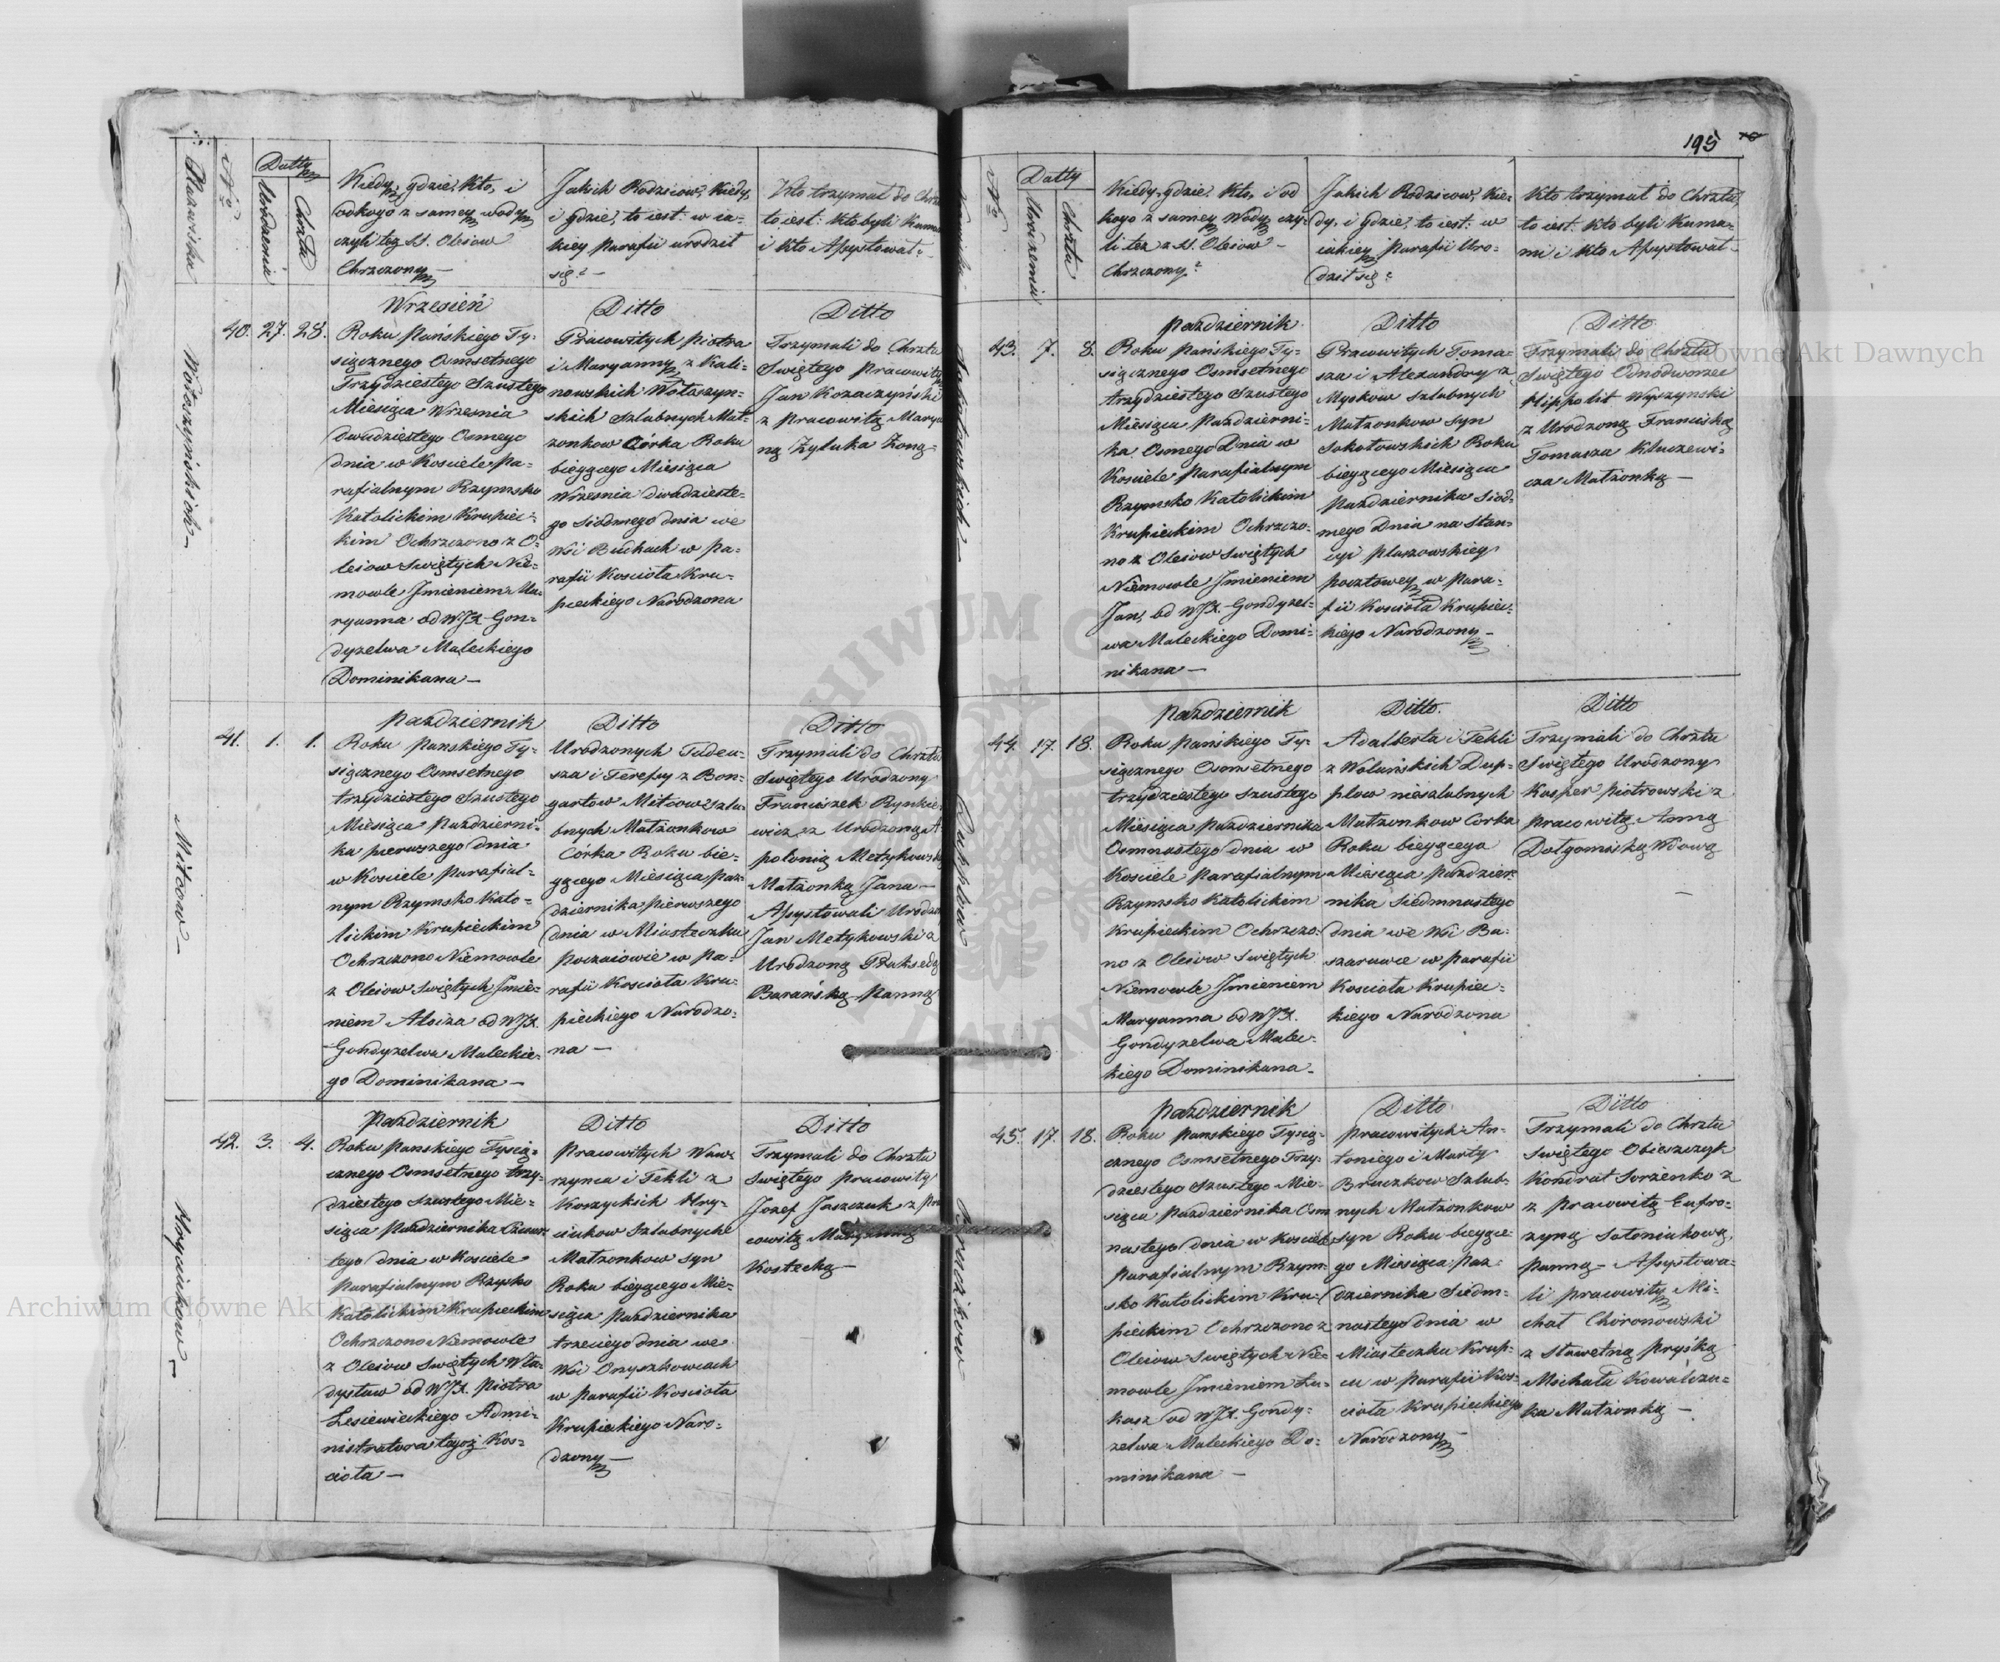 195
Nazwiska
No
Datty
Urodzenia
Chrztu
Kiedy, gdzie, Kto, i
odkogo z samey wody
czyli też SS. Oleiow
Chrzczony —
Jakich Rodzicow, Kiedy,
i gdzie, to iest: w ia-
kiey Parafii urodził
się? —
Kto trzymał do
to iest: Kto byli
i Kto Assystował? -
Wołoszynskich —
40. 27. 28.
Wrzesień
Roku Pańskiego Ty-
siącznego Osmsetnego
Trzydziestego Szustego
Miesiąca Wrzesnia
dwudziestego Osmego
dnia w Kosciele Pa-
rafialnym Rzymsko
Katolickim Krupiec-
kim Ochrzczono z O-
leiow Swiętych Nie-
mowle Jmieniem Ma-
ryanna od WJX. Gon-
dyzelwa Maleckiego
Dominikana —
Ditto
Pracowitych Piotra
i Maryanny z Kali-
nowskich Wołoszyn-
skich Szlubnych Mał-
zonkow Córka Roku
bieyącego Miesiąca
Wrzesnia dwadzieste-
go Siódmego dnia we
Wsi Buchach w Pa-
rafii Kosciola Kru-
pieckiego Narodzona
Ditto
Trzymali do Chrztu
Swiętego Pracowity
Jan Kozaczyński
z Pracowitą Marya
ną Zyluka Żoną -
Mitsow —
41. 1. 1.
Pazdziernik
Roku Pańskiego Ty-
siącznego Osmsetnego
trzydziestego Szustego
Miesiąca Pazdzierni-
ka pierwszego dnia
w Kosciele Parafial-
nym Rzymsko Kato-
lickim Krupieckim
Ochrzczono Niemowle
z Oleiow Swiętych Jmie-
niem Aloiza od WJX.
Gondyzelwa Maleckie-
go Dominikana —
Ditto
Urodzonych Tadeu-
sza i Teressy z Bon-
gartow Mitsow Szlu-
bnych Małzonkow
Córka Roku bie-
yącego Miesiąca Paz-
dziernika pierwszego
dnia w Miasteczku
Poczaiowie w Pa-
rafii Kosciola Kru-
pieckiego Narodzo-
na —
Ditto
Trzymali do Chrztu
Swiętego Urodzony
Franciszek Rynkie
wicz z Urodzoną A-
polonią Metykowską
Małżonką Jana —
Assystowali Urodzo
Jan Metykowski z
Urodzoną Praksedą
Barańską Panną
Hryciukow —
42. 3. 4.
Pazdziernik
Roku Panskiego Tysią-
cznego Osmsetnego trzy-
dziestego Szustego Mie-
siąca Pazdziernika Czwar
tego dnia w Kosciele
Parafialnym Rzysko
Katolickim Krupieckim
Ochrzczono Niemowle
z Oleiow Swiętych Wła-
dysław od WJX. Piotra
Lesiewieckiego Admi-
nistratora tegoż Kos-
ciola —
Ditto
Pracowitych Waw-
rzynca i Tekli z
Koszyckich Hry-
ciukow Szlubnych
Małzonkow Syn
Roku bieyącego Mie-
siąca Pazdziernika
trzeciego dnia we
Wsi Onyszkowcach
w Parafii Kosciola
Krupieckiego Naro-
dzony —
Ditto
Trzymali do Chrztu
Swiętego Pracowity
Jozef Jaszczuk z Pra
cowitą Maryanną
Kostecką —
No
Datty
Urodzenia
Chrztu
Kiedy, gdzie, Kto, i od
kogo z samey Wody, czy-
li też z SS. Oleiow -
Chrzczony?
Jakich Rodzicow, Kie-
dy, i gdzie, to iest: w
iakiey Parafii Uro-
dził się?
Kto trzymał do Chrztu,
to iest: Kto byli Kuma-
mi i Kto Assystował -
43. 7. 8.
Pazdziernik
Roku Pańskiego Ty-
siącznego Osmsetnego
trzydziestego Szustego
Miesiąca Pazdzierni-
ka Osmego Dnia w
Kosciele Parafialnym
Rzymsko Katolickim
Krupieckim Ochrzczo-
no z Oleiow Swiętych
Niemowle Jmieniem
Jan, od WJX. Gondyzel-
wa Maleckiego Domi-
nikana —
Ditto
Pracowitych Toma-
sza i Alexandry z
Myskow Szlubnych
Małzonkow Syn
Sokołowskich Roku
bieyącego Miesiąca
Pazdziernika Siod-
mego Dnia na Stan-
cyi Plaszowskiey
pocztowey w Para-
fii Kosciola Krupiec-
kiego Narodzony —
Ditto
Trzymali do Chrztu
Swiętego Odnodworzec
Hippolit Wyszynski
z Urodzoną Franciską
Tomasza Kluczewi-
cza Małżonką —
Dupplow
44. 17. 18.
Pazdziernik
Roku Pańskiego Ty-
siącznego Osmsetnego
trzydziestego Szustego
Miesiąca Pazdziernika
Osmnastego dnia w
Kosciele Parafialnym
Rzymsko Katolickim
Krupieckim Ochrzczo-
no z Oleiow Swiętych
Niemowle Jmieniem
Maryanna od WJX.
Gondyzelwa Malec-
kiego Dominikana —
Ditto.
Adalberta i Tekli
z Wolańskich Dup-
plow nieszlubnych
Małzonkow Corka
Roku bieyącego
Miesiąca Pazdzier-
nika Siedmnastego
dnia we Wsi Ba-
szarowce w Parafii
Kosciola Krupiec-
kiego Narodzona
Ditto
Trzymali do Chrztu
Swiętego Urodzony
Kasper Piotrowski z
Pracowitą Anną
Dołgomiską Wdową
—
Braczkow
45. 17. 18.
Pazdziernik
Roku Panskiego Tysią-
cznego Osmsetnego Trzy-
dziestego Szustego Mie-
siąca Pazdziernika Osm
nastego dnia w Kosciele
Parafialnym Rzym-
sko Katolickim Kru-
pieckim Ochrzczono z
Oleiow Swiętych Nie-
mowle Jmieniem Łu-
kasz od WJX. Gondy-
zelwa Maleckiego Do-
minikana —
Ditto
Pracowitych An-
toniego i Marty
Braczkow Szlub-
nych Małzonkow
Syn Roku bieyące
go Miesiąca Paz-
dziernika Siedm-
nastego dnia w
Miasteczku Krup-
cu w Parafii Kos-
ciola Krupieckiego
Narodzony —
Ditto
Trzymali do Chrztu
Swiętego Obieszczyk
Kondrat Sorżenko z
z Pracowitą Eufro-
zyną Sotoniukową,
panną — Assystowa-
li pracowity Mi-
chał Choronowski
z Sławetną Pryską
Michała Kowalczu-
ka Małżonką —
Archiwum Główne Akt Dawnych
Archiwum Główne Akt Dawnych